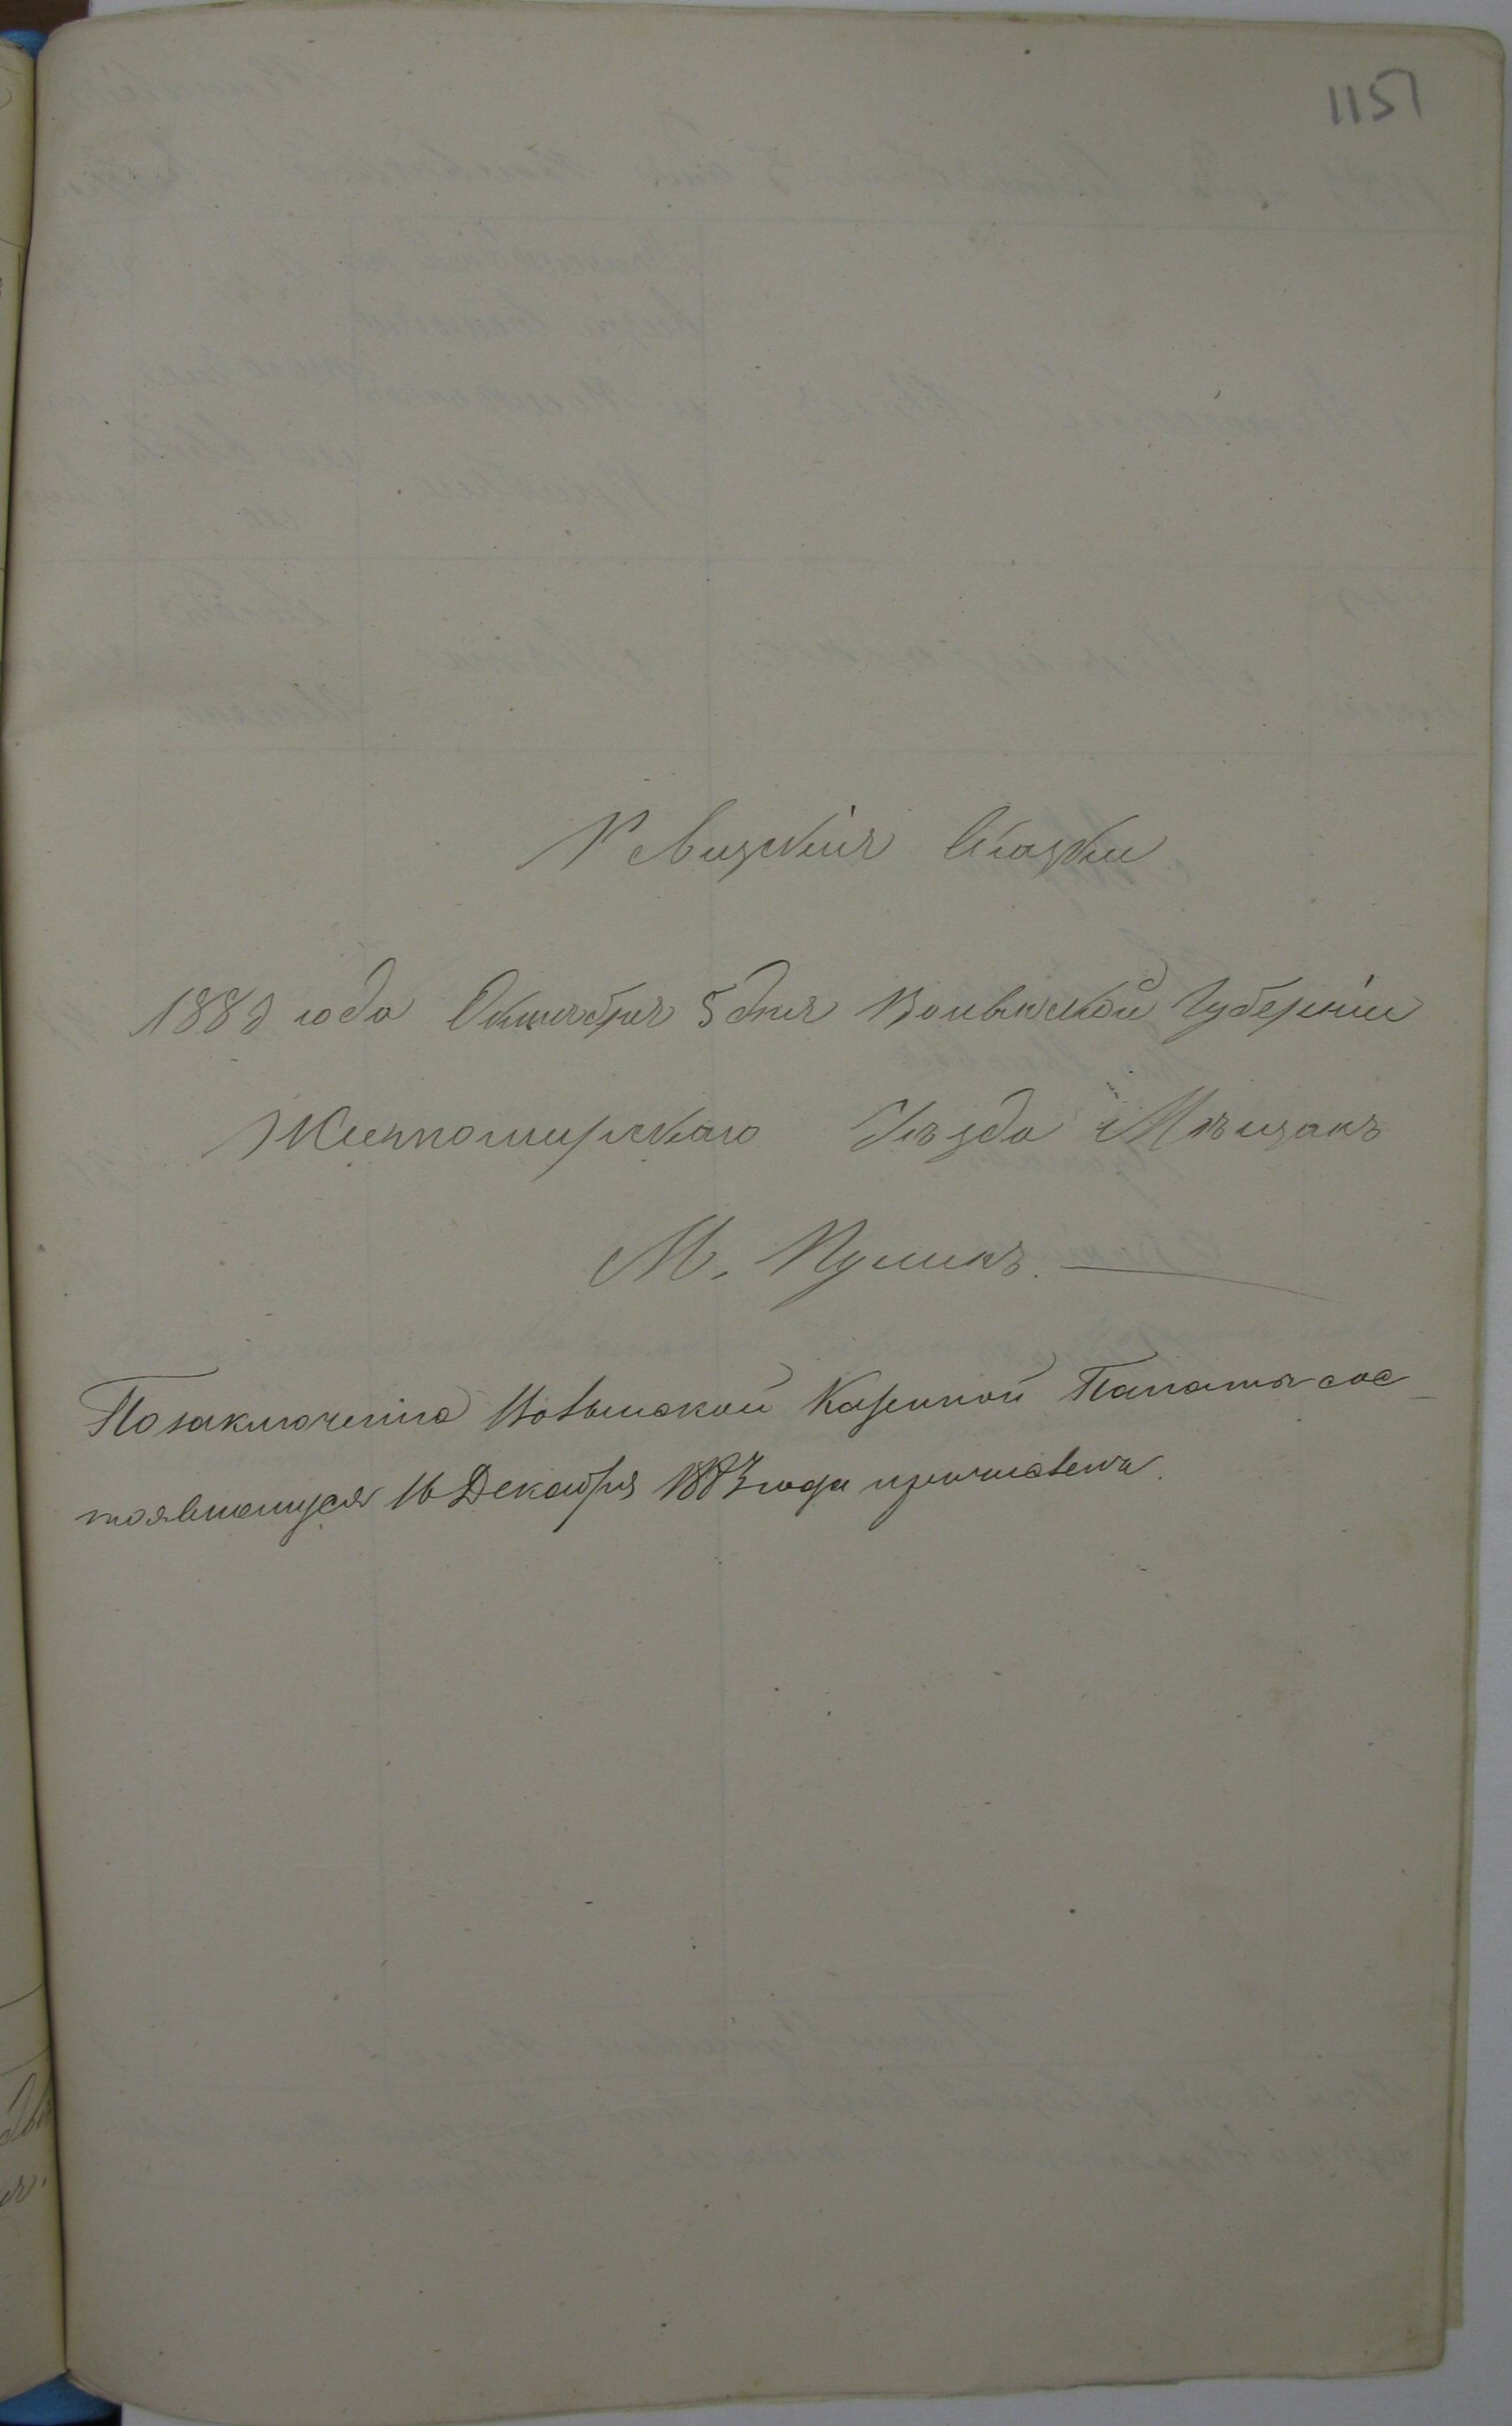 1151
Ревизскія Сказки
1883 года Октября 5 дня Волынской Губерніи
Житомирскаго Уѣзда Мѣщанъ
М. Пулинъ.
По заключенію Волынской Казенной Палаты сос-
тоявшемуся 16 Декабря 1883 года причислены.